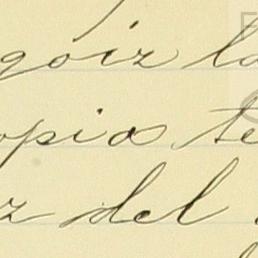 goiz la
opios te
z del